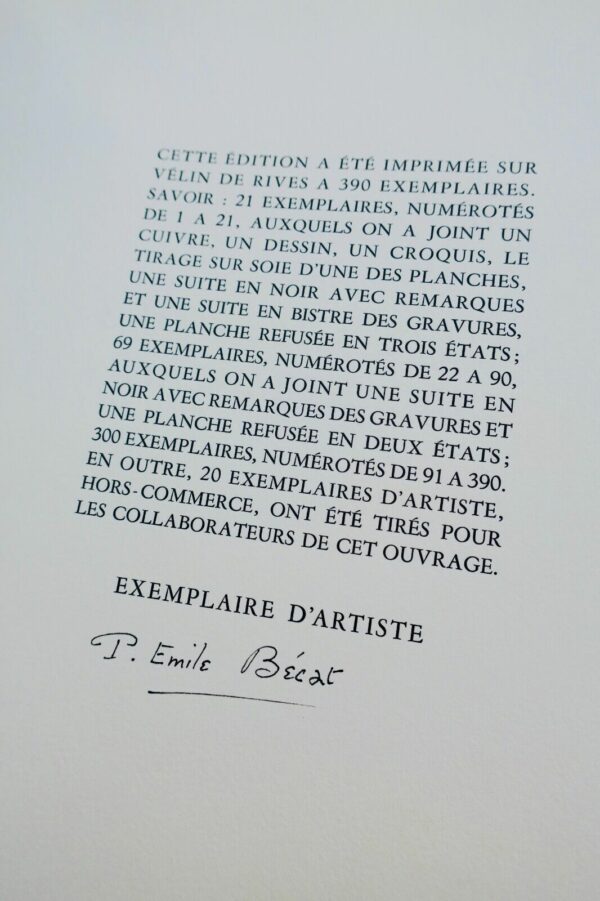 CETTE ÉDITION A ÉTÉ IMPRIMÉE SUR
VÉLIN DE RIVES A 390 EXEMPLAIRES.
SAVOIR : 21 EXEMPLAIRES, NUMÉROTÉS
DE 1 A 21, AUXQUELS ON A JOINT UN
CUIVRE, UN DESSIN, UN CROQUIS, LE
TIRAGE SUR SOIE D'UNE DES PLANCHES,
UNE SUITE EN NOIR AVEC REMARQUES
ET UNE SUITE EN BISTRE DES GRAVURES,
UNE PLANCHE REFUSÉE EN TROIS ÉTATS ;
69 EXEMPLAIRES, NUMÉROTÉS DE 22 A 90,
AUXQUELS ON A JOINT UNE SUITE EN
NOIR AVEC REMARQUES DES GRAVURES ET
UNE PLANCHE REFUSÉE EN DEUX ÉTATS ;
300 EXEMPLAIRES, NUMÉROTÉS DE 91 A 390.
EN OUTRE, 20 EXEMPLAIRES D'ARTISTE,
HORS-COMMERCE, ONT ÉTÉ TIRÉS POUR
LES COLLABORATEURS DE CET OUVRAGE.
EXEMPLAIRE D'ARTISTE
P. Emile Bécat